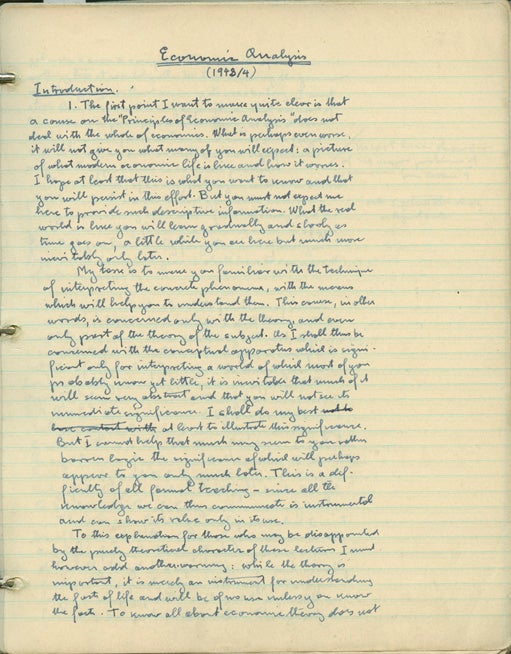 Economic Analysis
(1943/4)
Introduction.
1. The first point I want to make quite clear is that
a course on the "Principles of Economic Analysis" does not
deal with the whole of economics. What is perhaps even worse,
it will not give you what many of you will expect: a picture
of what modern economic life is like and how it works.
I hope at least that this is what you want to know and that
you will persist in this effort. But you must not expect me
here to provide such descriptive information. What the real
world is like you will learn gradually and slowly as
time goes on, a little while you are here but much more
inevitably only later.
My task is to make you familiar with the technique
of interpreting the concrete phenomena, with the means
which will help you to understand them. This course, in other
words, is concerned only with the theory, and even
only part of the theory of the subject. As I shall thus be
concerned with the conceptual apparatus which is signi-
ficant only for interpreting a world of which most of you
probably know yet little, it is inevitable that much of it
will seem very abstract and that you will not see its
immediate significance. I shall do my best not to
lose contact with at least to illustrate this significance.
But I cannot help that much may seem to you rather
barren logic the significance of which will perhaps
appear to you only much later. This is a dif-
ficulty of all formal teaching – since all the
knowledge we can thus communicate is instrumental
and can show its value only in its use.
To this explanation for those who may be disappointed
by the purely theoretical character of these lectures I must
however add another warning: while the theory is
important, it is merely an instrument for understanding
the facts of life and will be of no use unless you know
the facts. To know all about economic theory does not